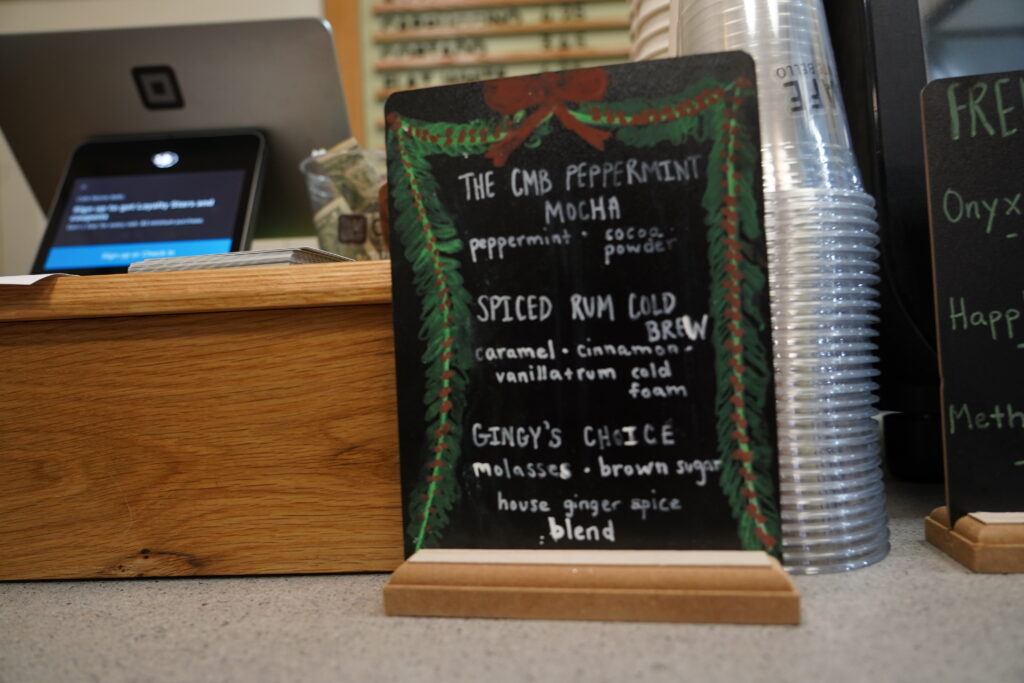 THE CMB PEPPERMINT
MOCHA
peppermint · cocoa
powder
SPICED RUM COLD
BREW
caramel · cinnamon ·
vanilla + rum cold
foam
GINGY'S CHOICE
molasses · brown sugar
house ginger spice
blend
Sign up to get Loyalty Stars and
coupons
BELLO
FRE
Onyx
Happ
Meth